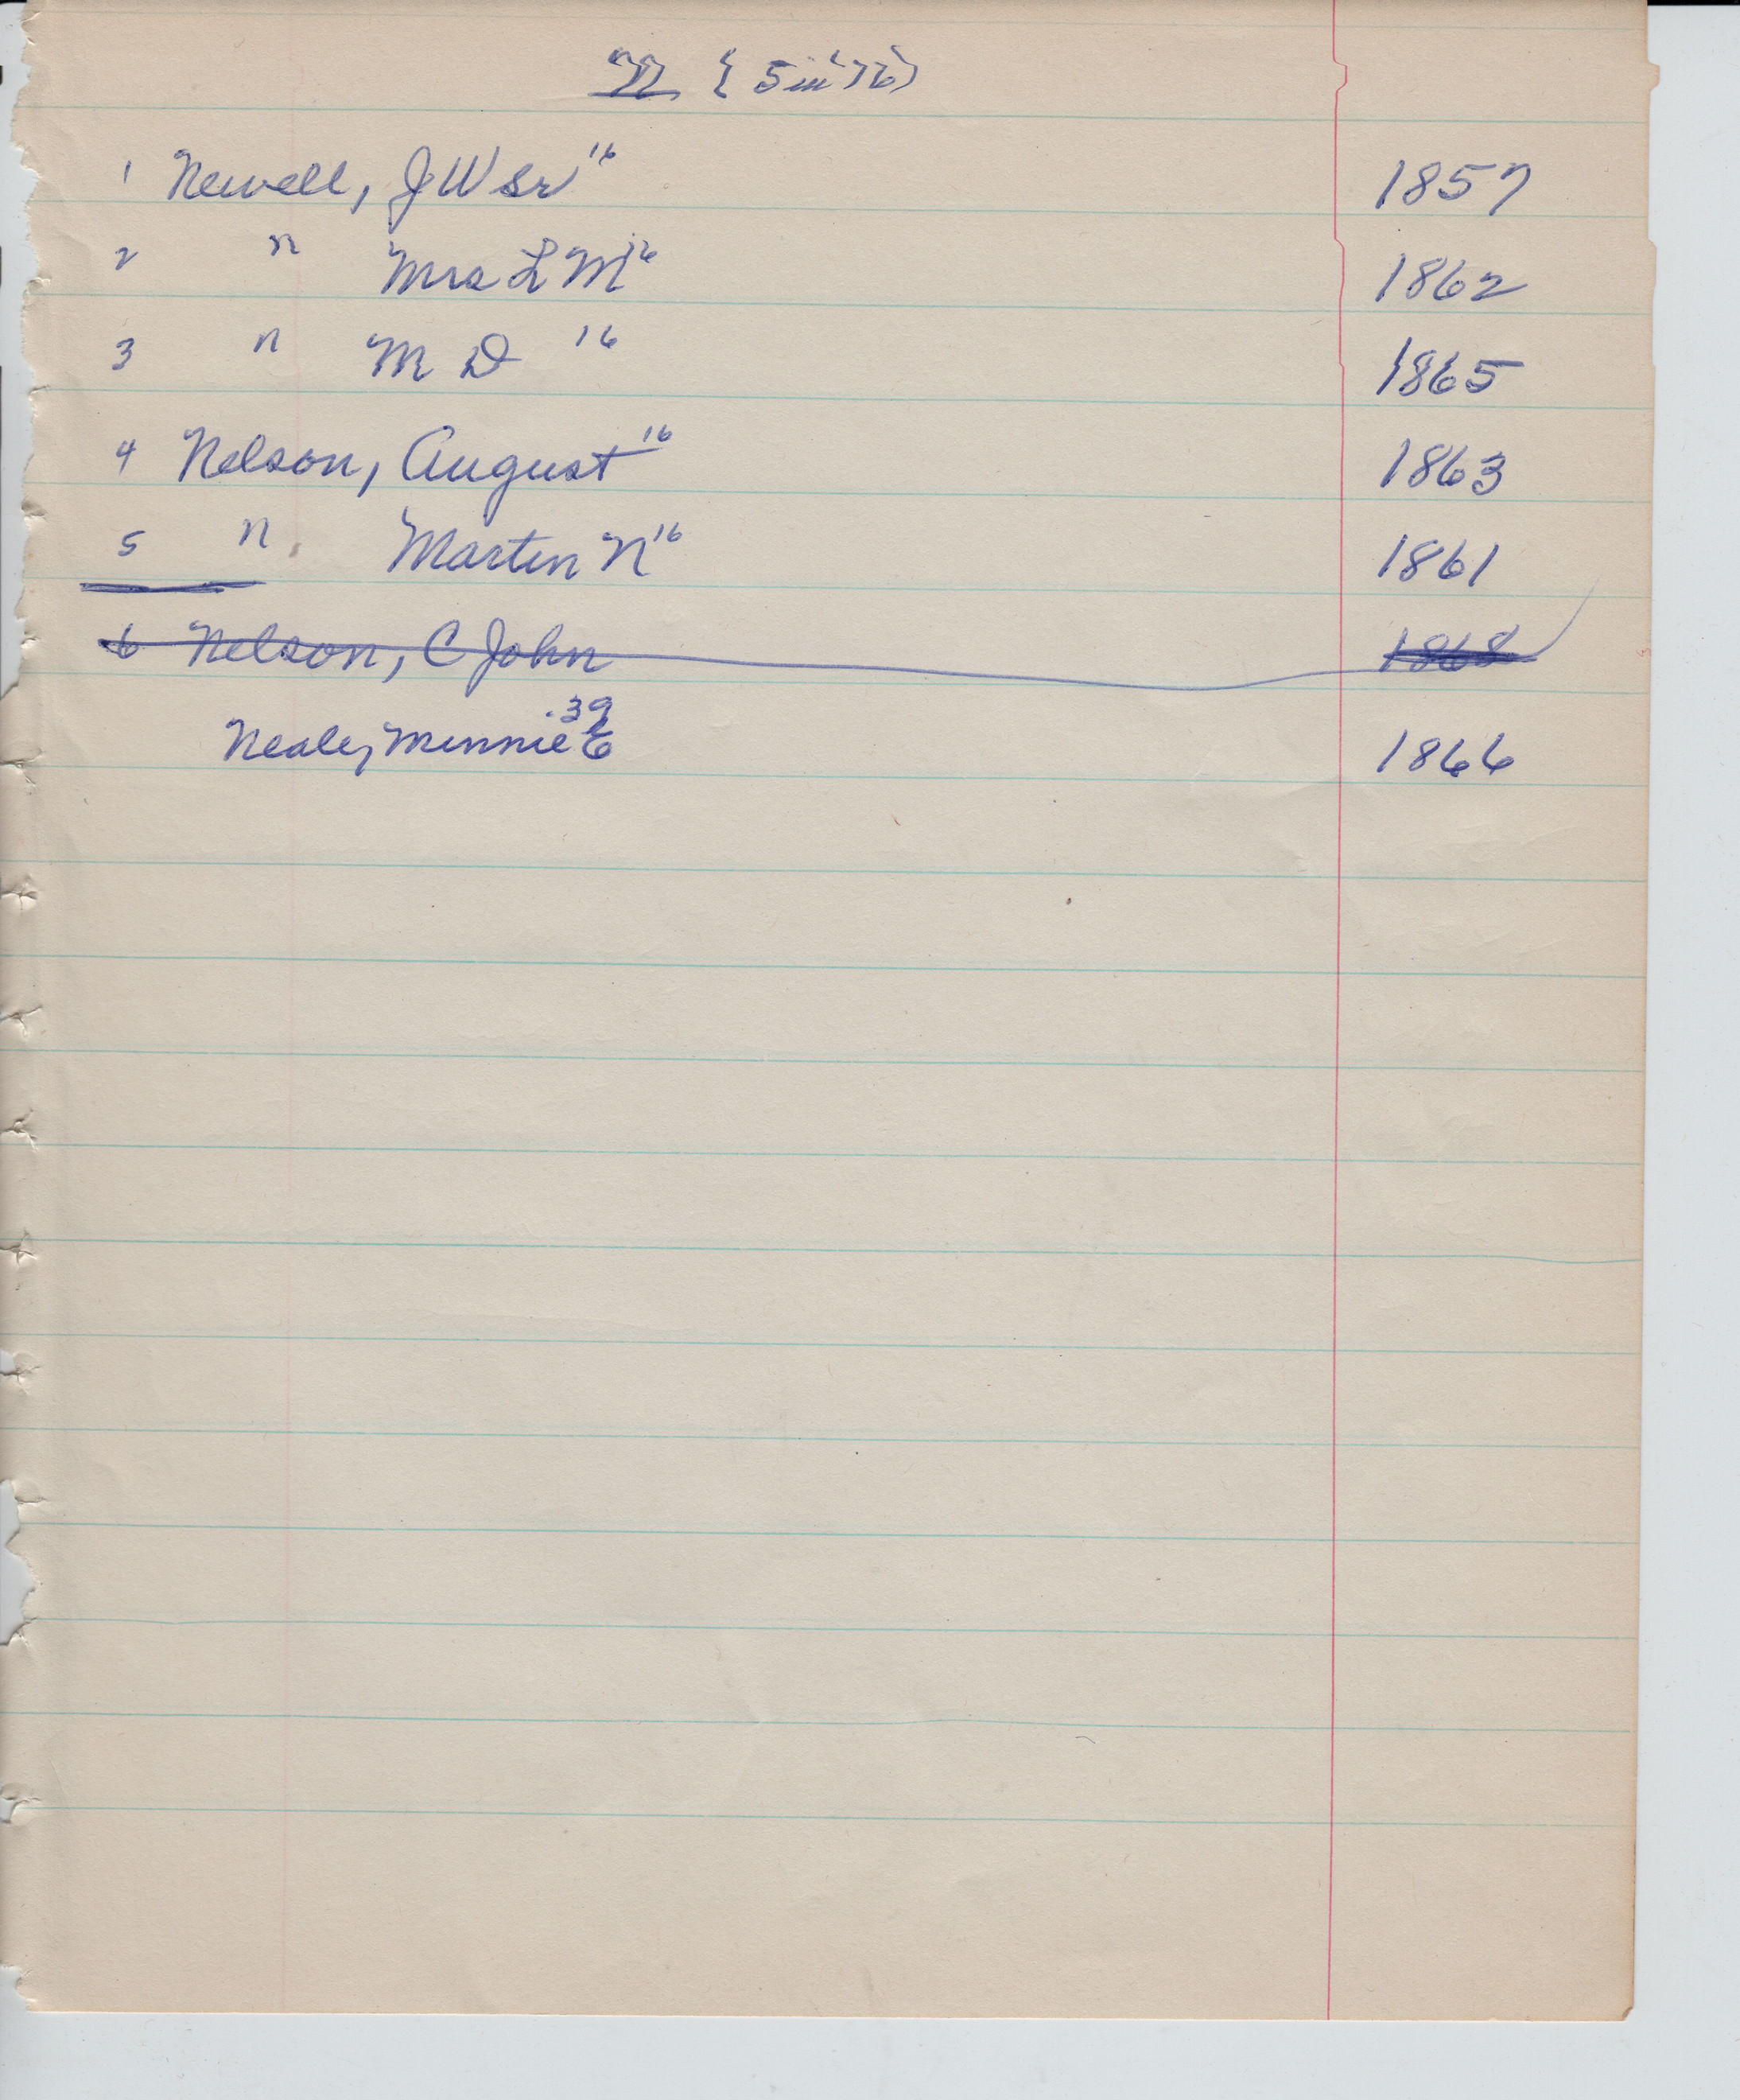 N {5 in '16}
1 Newell, J W Sr 16 1857
2 " Mrs L M 16 1862
3 " M D 16 1865
4 Nelson, August 16 1863
5 " Martin N 16 1861
6 Nelson, C John 1868
Neale, Minnie E .39 1866